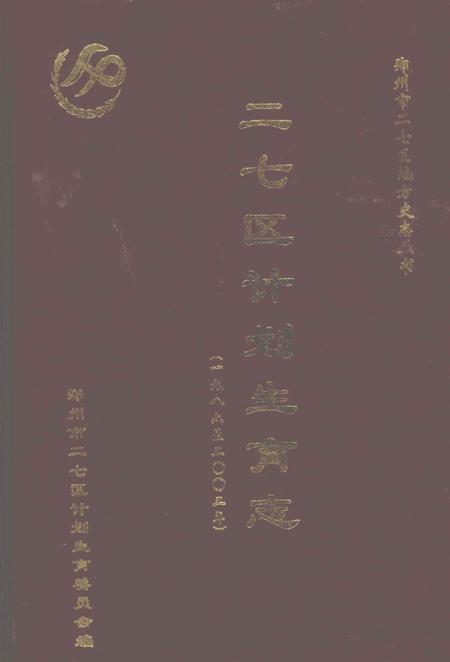 郑州市二七区地方史志丛书
二七区计划生育志
(一九八六至二〇〇二年)
郑州市二七区计划生育委员会编